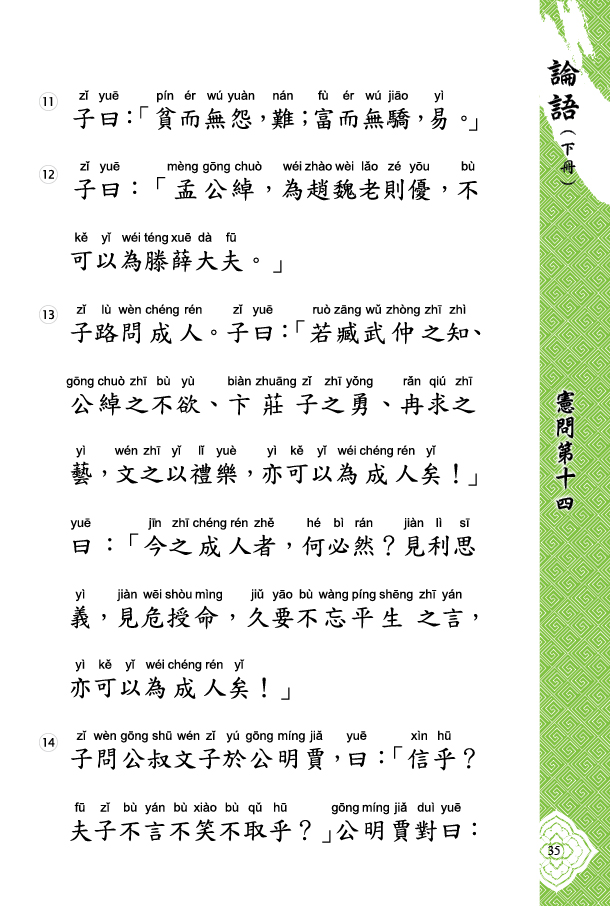 zǐ yuē pín ér wú yuàn nán fù ér wú jiāo yì
11 子曰：「貧而無怨，難；富而無驕，易。」
zǐ yuē mèng gōng chuò wéi zhào wèi lǎo zé yōu bù
12 子曰：「孟公綽，為趙魏老則優，不
kě yǐ wéi téng xuē dà fū
可以為滕薛大夫。」
zǐ lù wèn chéng rén zǐ yuē ruò zāng wǔ zhòng zhī zhì
13 子路問成人。子曰：「若臧武仲之知、
gōng chuò zhī bù yù biàn zhuāng zǐ zhī yǒng rǎn qiú zhī
公綽之不欲、卞莊子之勇、冉求之
yì wén zhī yǐ lǐ yuè yì kě yǐ wéi chéng rén yǐ
藝，文之以禮樂，亦可以為成人矣！」
yuē jīn zhī chéng rén zhě hé bì rán jiàn lì sī
曰：「今之成人者，何必然？見利思
yì jiàn wēi shòu mìng jiǔ yāo bù wàng píng shēng zhī yán
義，見危授命，久要不忘平生之言，
yì kě yǐ wéi chéng rén yǐ
亦可以為成人矣！」
zǐ wèn gōng shū wén zǐ yú gōng míng jiǎ yuē xìn hū
14 子問公叔文子於公明賈，曰：「信乎？
fū zǐ bù yán bù xiào bù qǔ hū gōng míng jiǎ duì yuē
夫子不言不笑不取乎？」公明賈對曰：
論語（下冊）
憲問第十四
35